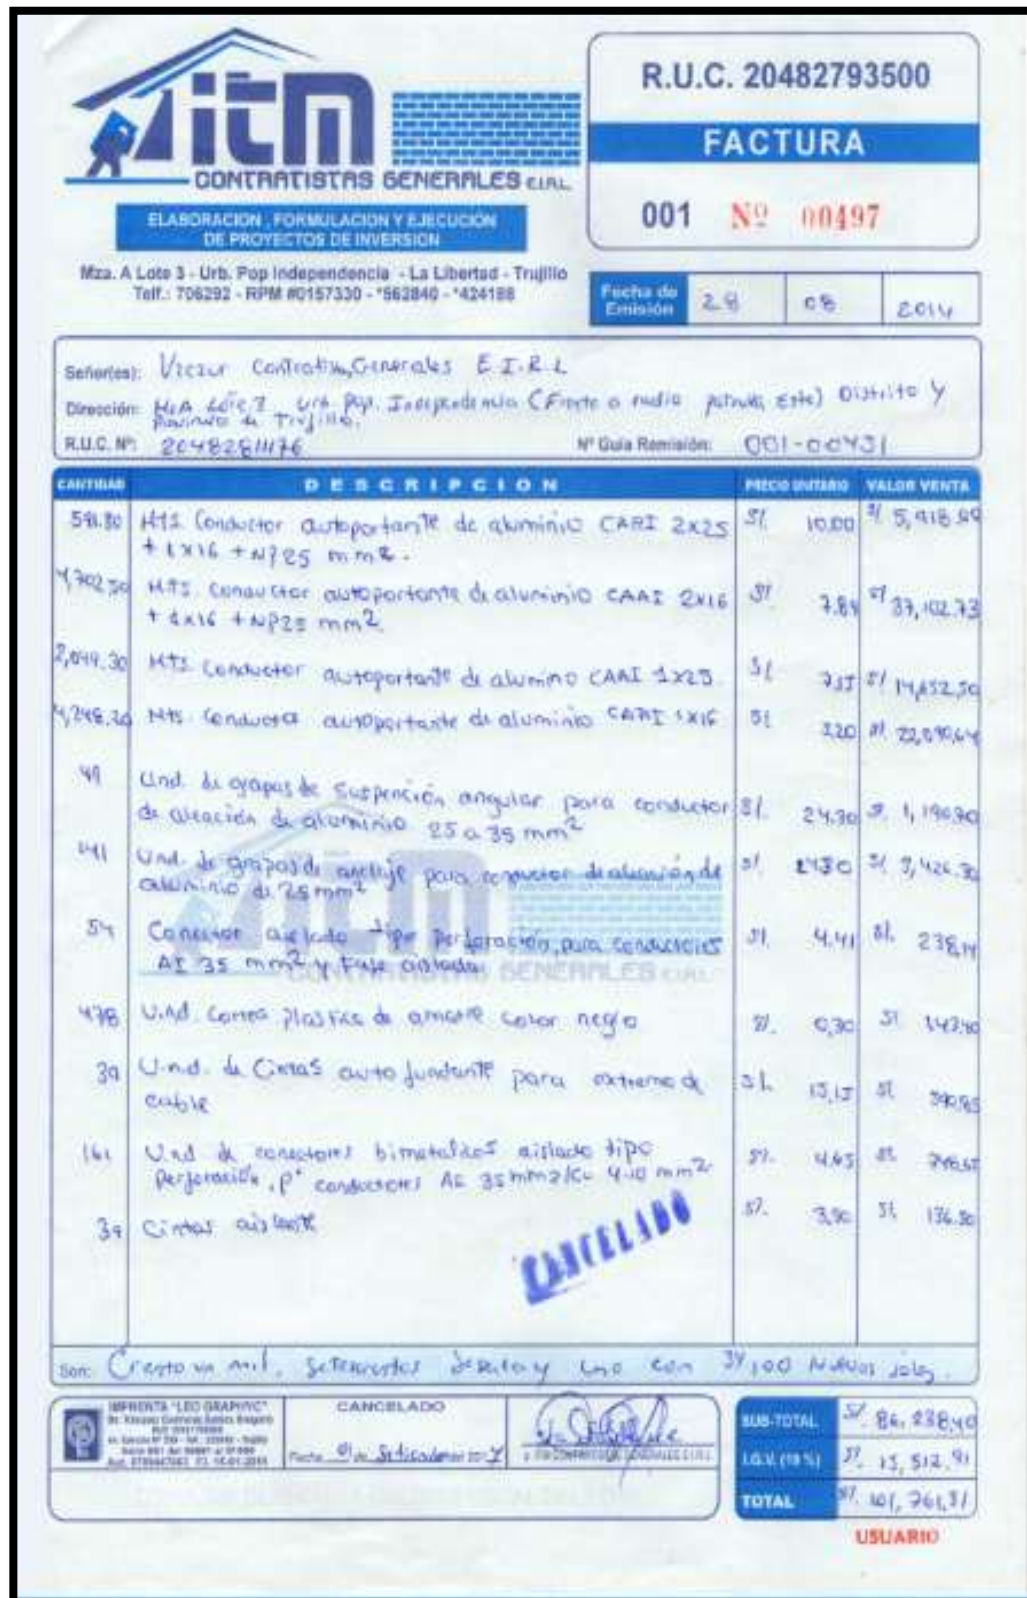 itm
CONTRATISTAS GENERALES E.I.R.L.
ELABORACION , FORMULACION Y EJECUCION
DE PROYECTOS DE INVERSION
Mza. A Lote 3 - Urb. Pop Independencia - La Libertad - Trujillo
Telf.: 706292 - RPM #0157330 - *562840 - *424188
R.U.C. 20482793500
FACTURA
001 Nº 00497
Fecha de Emisión 28 08 2014
Señor(es): Contratistas Generales E.I.R.L
Dirección: Mza Lote 3 Urb. Pop. Independencia (Frente a radio Este) Distrito y
Provincia de Trujillo.
R.U.C. Nº: 20482811176 Nº Guía Remisión: 001-00431
CANTIDAD DESCRIPCION PRECIO UNITARIO VALOR VENTA
591.80 MTS. Conductor autoportante de aluminio CAAI 2x25 S/. 10.00 S/.
+ 1x16 + NP25 mm2.
4,702.50 MTS. Conductor autoportante de aluminio CAAI 2x16 S/. 7.89 S/ 37,102.73
+ 1x16 + NP25 mm2
2,049.30 MTS Conductor autoportante de aluminio CAAI 1x25. S/. 7.15 S/ 14,652.50
4,248.20 Mts. Conductor autoportante de aluminio CAAI 1x16 S/. S/. 22,090.64
49 Und. de grapas de suspención angular para conductor S/. 24.30 S/. 1,190.70
de aleación de aluminio 25 a 35 mm2
141 Und. de grapas de anclaje para conductor de aleación de S/. 24.30 S/. 3,426.30
aluminio de 25 mm2
54 Conector aislado tipo perforación, para conductores S/. 4.41 S/. 238,14
AS 35 mm2 y Fase aislada
478 Und. Correa plastica de amarre color negro S/. 0,30 S/. 143.40
39 U.n.d. de Cintas auto fundante para extremo de S/. 15,15 S/. 590.85
cable
161 Und de conectores bimetalicos aislado tipo S/. 4.65 S/. 748.65
Perforación, pª conductores AS 35 mm2/Cu 4-10 mm2
39 Cintas aislante S/. S/. 136.50
CANCELADO
Son: Ciento un mil, setecientos sesenta y uno con 31/100 Nuevos soles.
IMPRENTA "LEO GRAPHYC"
CANCELADO
Fecha 01 de Setiembre
SUB-TOTAL S/. 86,238,40
I.G.V. (18 %) S/. 15,512.91
TOTAL S/. 101,761,31
USUARIO